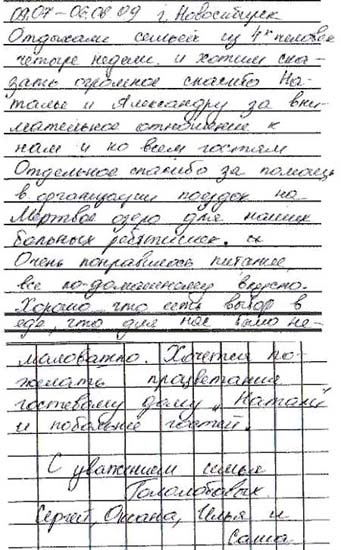 09.07-06.08 09 г. Новосибирск
Отдыхали семьёй из 4х человек
четыре недели. и хотим ска-
зать огромное спасибо На-
талье и Александру за вни-
мательное отношение к
нам и ко всем гостям
Отдельное спасибо за помощь
в организации поездок на
Мертвое озеро для наших
больных ребятишек.
Очень понравилось питание,
все по-домашнему вкусно.
Хорошо что есть выбор в
еде, что для нас было не-
маловажно. Хочется по-
желать процветания
гостевому дому „Натали"
и побольше гостей.
С уважением семья
Сергей, Оксана, Илья и
Саша.